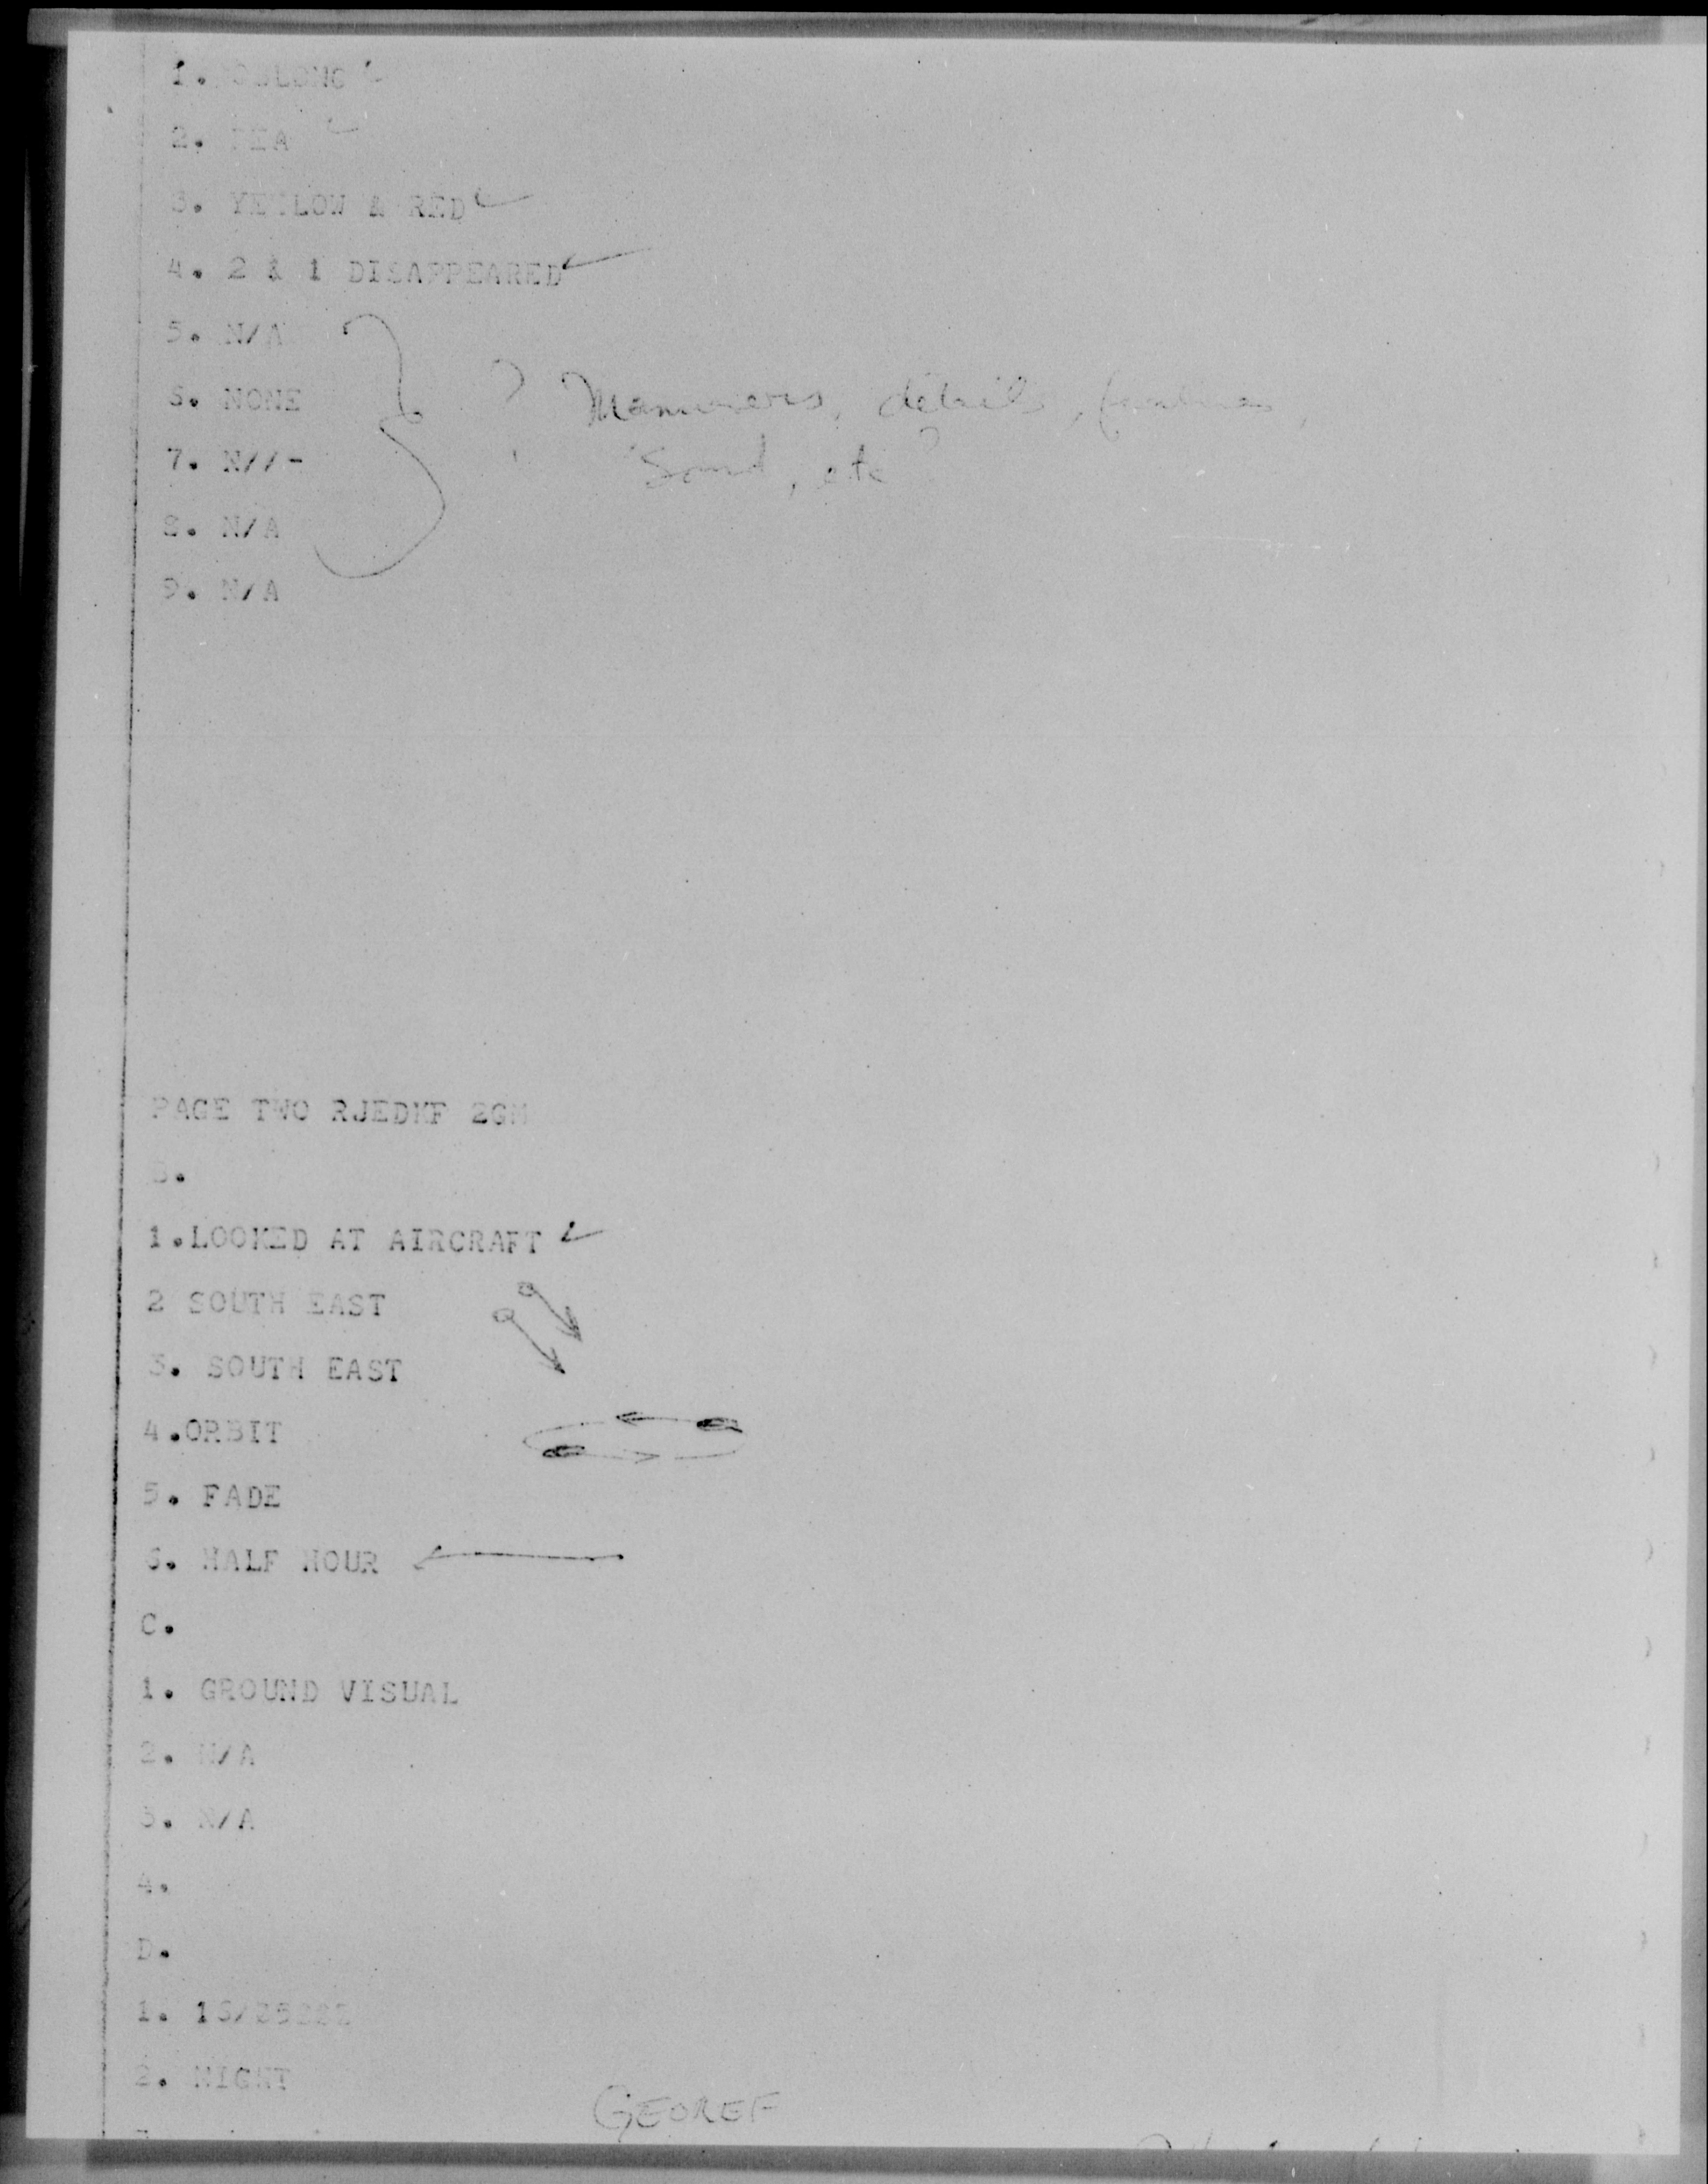 1. OBLONG
2. PEA
3. YELLOW & RED
4. 2 & 1 DISAPPEARED
5. N/A
6. NONE
? Manuvers, details,
7. N//-
Sound, etc ?
8. N/A
9. N/A
PAGE TWO RJEDKF 2GM
B.
1.LOOKED AT AIRCRAFT
2 SOUTH EAST
3. SOUTH EAST
4.ORBIT
5. FADE
6. HALF HOUR
C.
1. GROUND VISUAL
2. N/A
3. N/A
4.
D.
1.
2. NIGHT
GEOREF